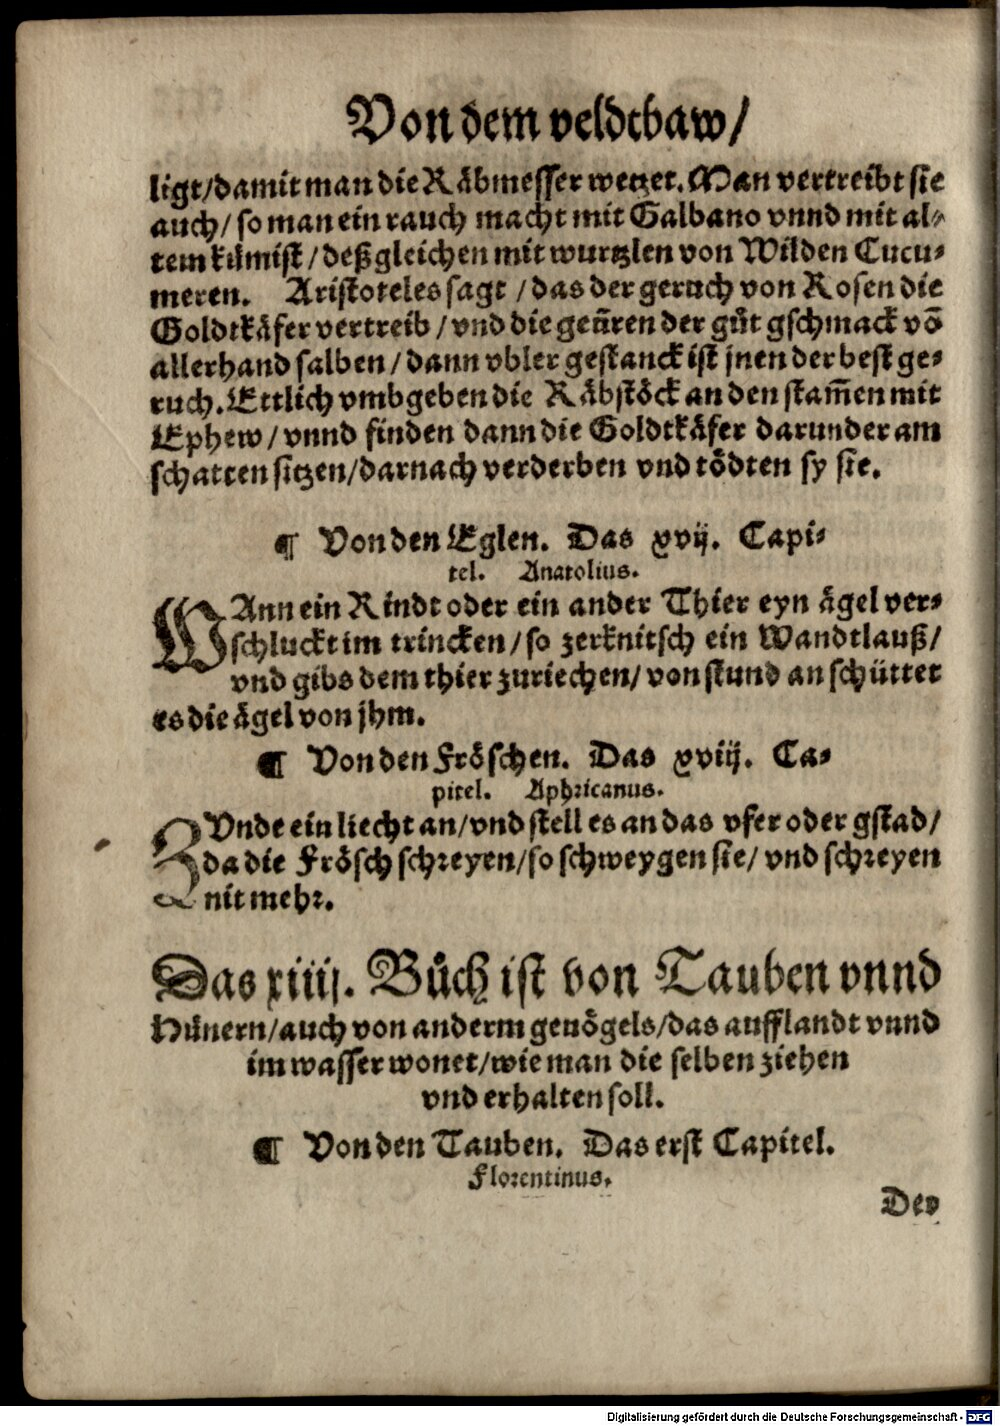 Von dem veldtbaw/
ligt/damit man die Räbmesser wetzet. Man vertreibt sie
auch/ so man ein rauch macht mit Galbano vnnd mit al⸗
tem kümist/deßgleichen mit wurtzlen von Wilden Cucu⸗
meren. Aristoteles sagt /das der geruch von Rosen die
Goldtkäfer vertreib/vnd die geüren der gůt gschmack võ
allerhand salben/dann vbler gestanck ist jnen der best ge⸗
ruch. Ettlich vmbgeben die Räbstöck an den stam̃en mit
Ephew/vnnd finden dann die Goldtkäfer darunder am
schatten sitzen/darnach verderben vnd tödten sy sie.
¶ Von den Eglen. Das xvij. Capi⸗
tel. Anatolius.
WAnn ein Rindt oder ein ander Thier eyn ägel ver⸗
schluckt im trincken/so zerknitsch ein Wandtlauß/
vnd gibs dem thier zuriechen/von stund an schüttet
es die ägel von jhm.
¶ Von den Fröschen. Das xviij. Ca⸗
pitel. Aphricanus.
ZVnde ein liecht an/vnd stell es an das vfer oder gstad/
da die Frösch schreyen/so schweygen sie/ vnd schreyen
nit mehr.
Das xiiij. Bůch ist von Tauben vnnd
Hünern/auch von anderm geuögels/das auff landt vnnd
im wasser wonet/wie man die selben ziehen
vnd erhalten soll.
¶ Von den Tauben. Das erst Capitel.
Florentinus.
Dev
Digitalisierung gefördert durch die Deutsche Forschungsgemeinschaft - DFG